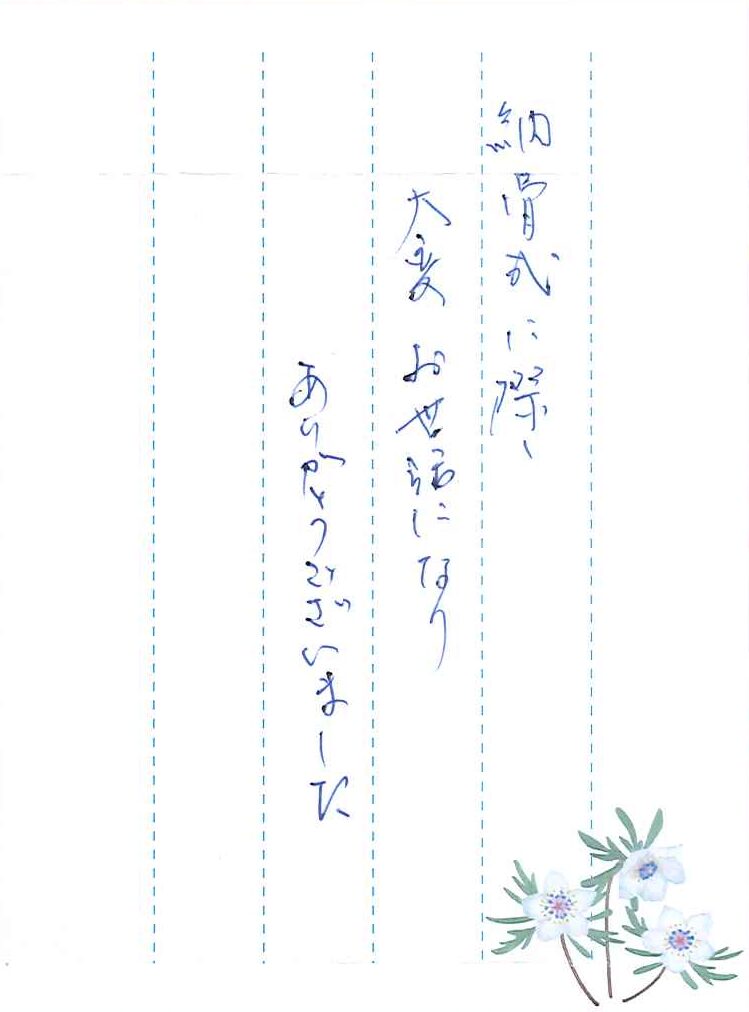 納骨式に際し
大変お世話になり
ありがとうございました